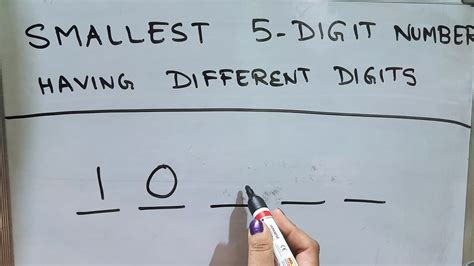 SMALLEST 5-DIGIT NUMBER
HAVING DIFFERENT DIGITS
1 0 _ _ _